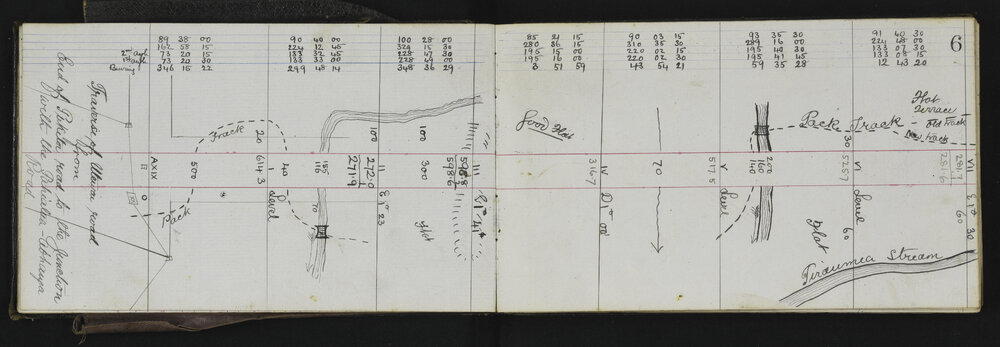 89 38 00
162 58 15
2nd angle 73 20 15
1st angle 73 20 30
Bearing 346 15 22
90 40 00
224 12 45
133 32 45
133 33 00
299 48 14
100 28 00
329 15 30
228 47 30
228 49 00
348 36 29
85 21 15
280 36 15
195 15 00
195 16 00
3 51 59
90 03 15
310 35 30
220 02 15
220 02 30
43 54 21
93 35 30
289 16 00
195 40 30
195 41 45
59 35 28
91 40 30
224 48 00
133 07 30
133 08 15
12 43 20
6
Traverse of road
from
End of road to the junction
with the
Road.
Track
Pack
XXIX
0
500
20
614.3
40
Level
II
185
116
70
100
272.0
271.9
E 1° 23
100
300
Flat
598.8
598.6
III
E 1° 41
Good Flat
316.7
IV
D 1° 00
70
517.5
V
Level
200
160
140
Pack Track
30
525.7
VI
Level
60
Flat
Flat
Terrace
Old track
New track
281.7
281.6
VII
E 1° 30
60
Tiraumea Stream